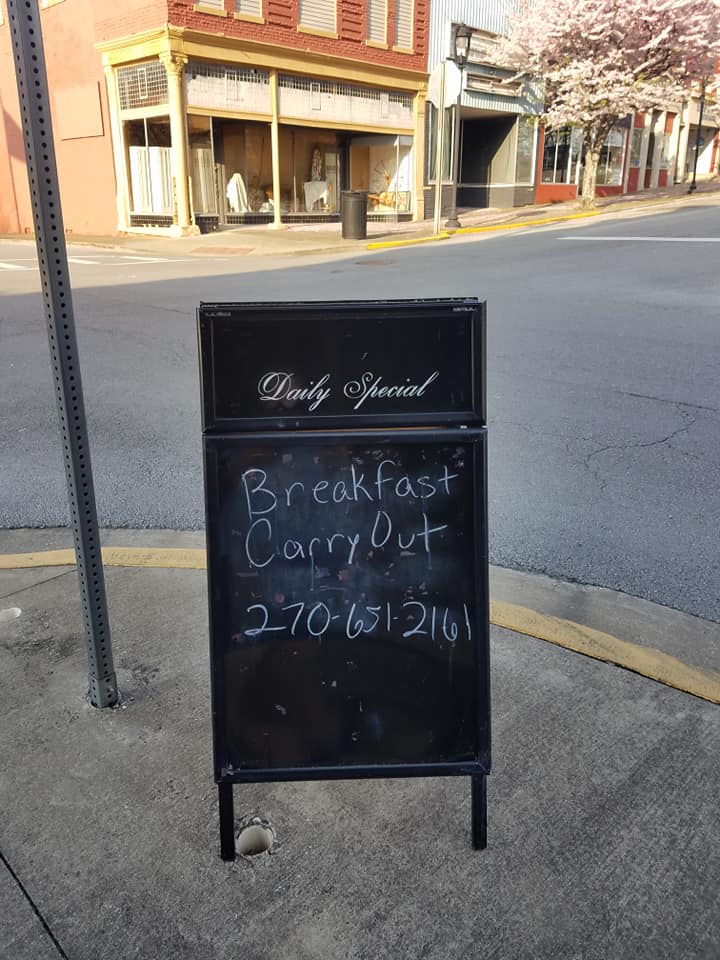 Daily Special
Breakfast
Carry Out
270-651-2161